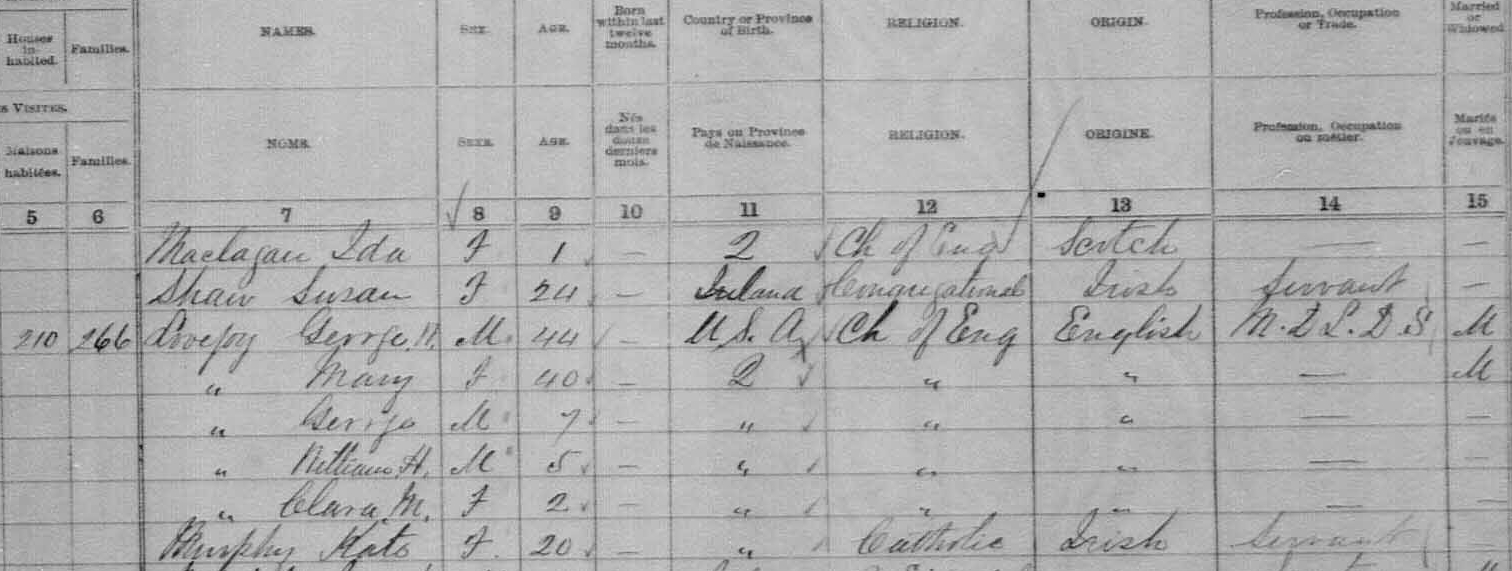 Houses in-habited. Families. NAMES. SEX. AGE. Born within last twelve months. Country or Province of Birth. RELIGION. ORIGIN. Profession, Occupation or Trade. Married or Widowed
S VISITES.
Maisons habitées. Familles. NOMS. SEXE. AGE. Nés dans les douze derniers mois. Pays ou Province de Naissance. RELIGION. ORIGINE. Profession, Occupation ou métier. Mariés ou en veuvage.
5 6 7 8 9 10 11 12 13 14 15
Maclagan Ida F 1 – Q Ch of Eng Scotch — –
Shaw Susan F 24 – Ireland Congregational Irish Servant –
210 266 Lovejoy George H. M 44 – U.S.A. Ch of Eng English M.D L.D.S M
" Mary F 40 – Q " " — M
" George M 7 – " " " — –
" William H. M 5 – " " " — –
" Clara M. F 2 – " " " — –
Murphy Kate F. 20 – " Catholic Irish Servant –